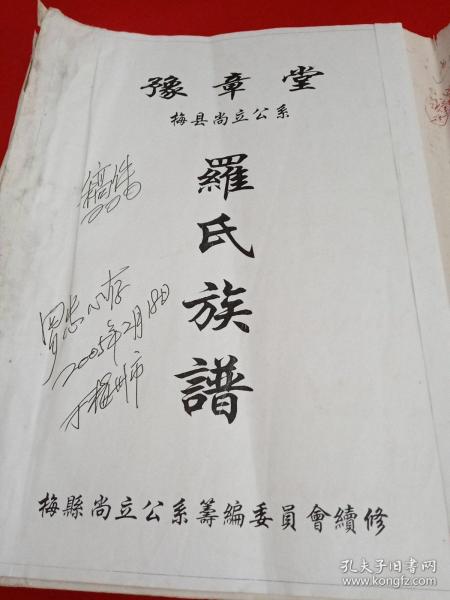 豫章堂
梅县尚立公系
羅氏族譜
稿件
2005年2月18日
于梅州市
梅縣尚立公系籌編委員會續修
孔夫子旧书网
www.kongfz.com